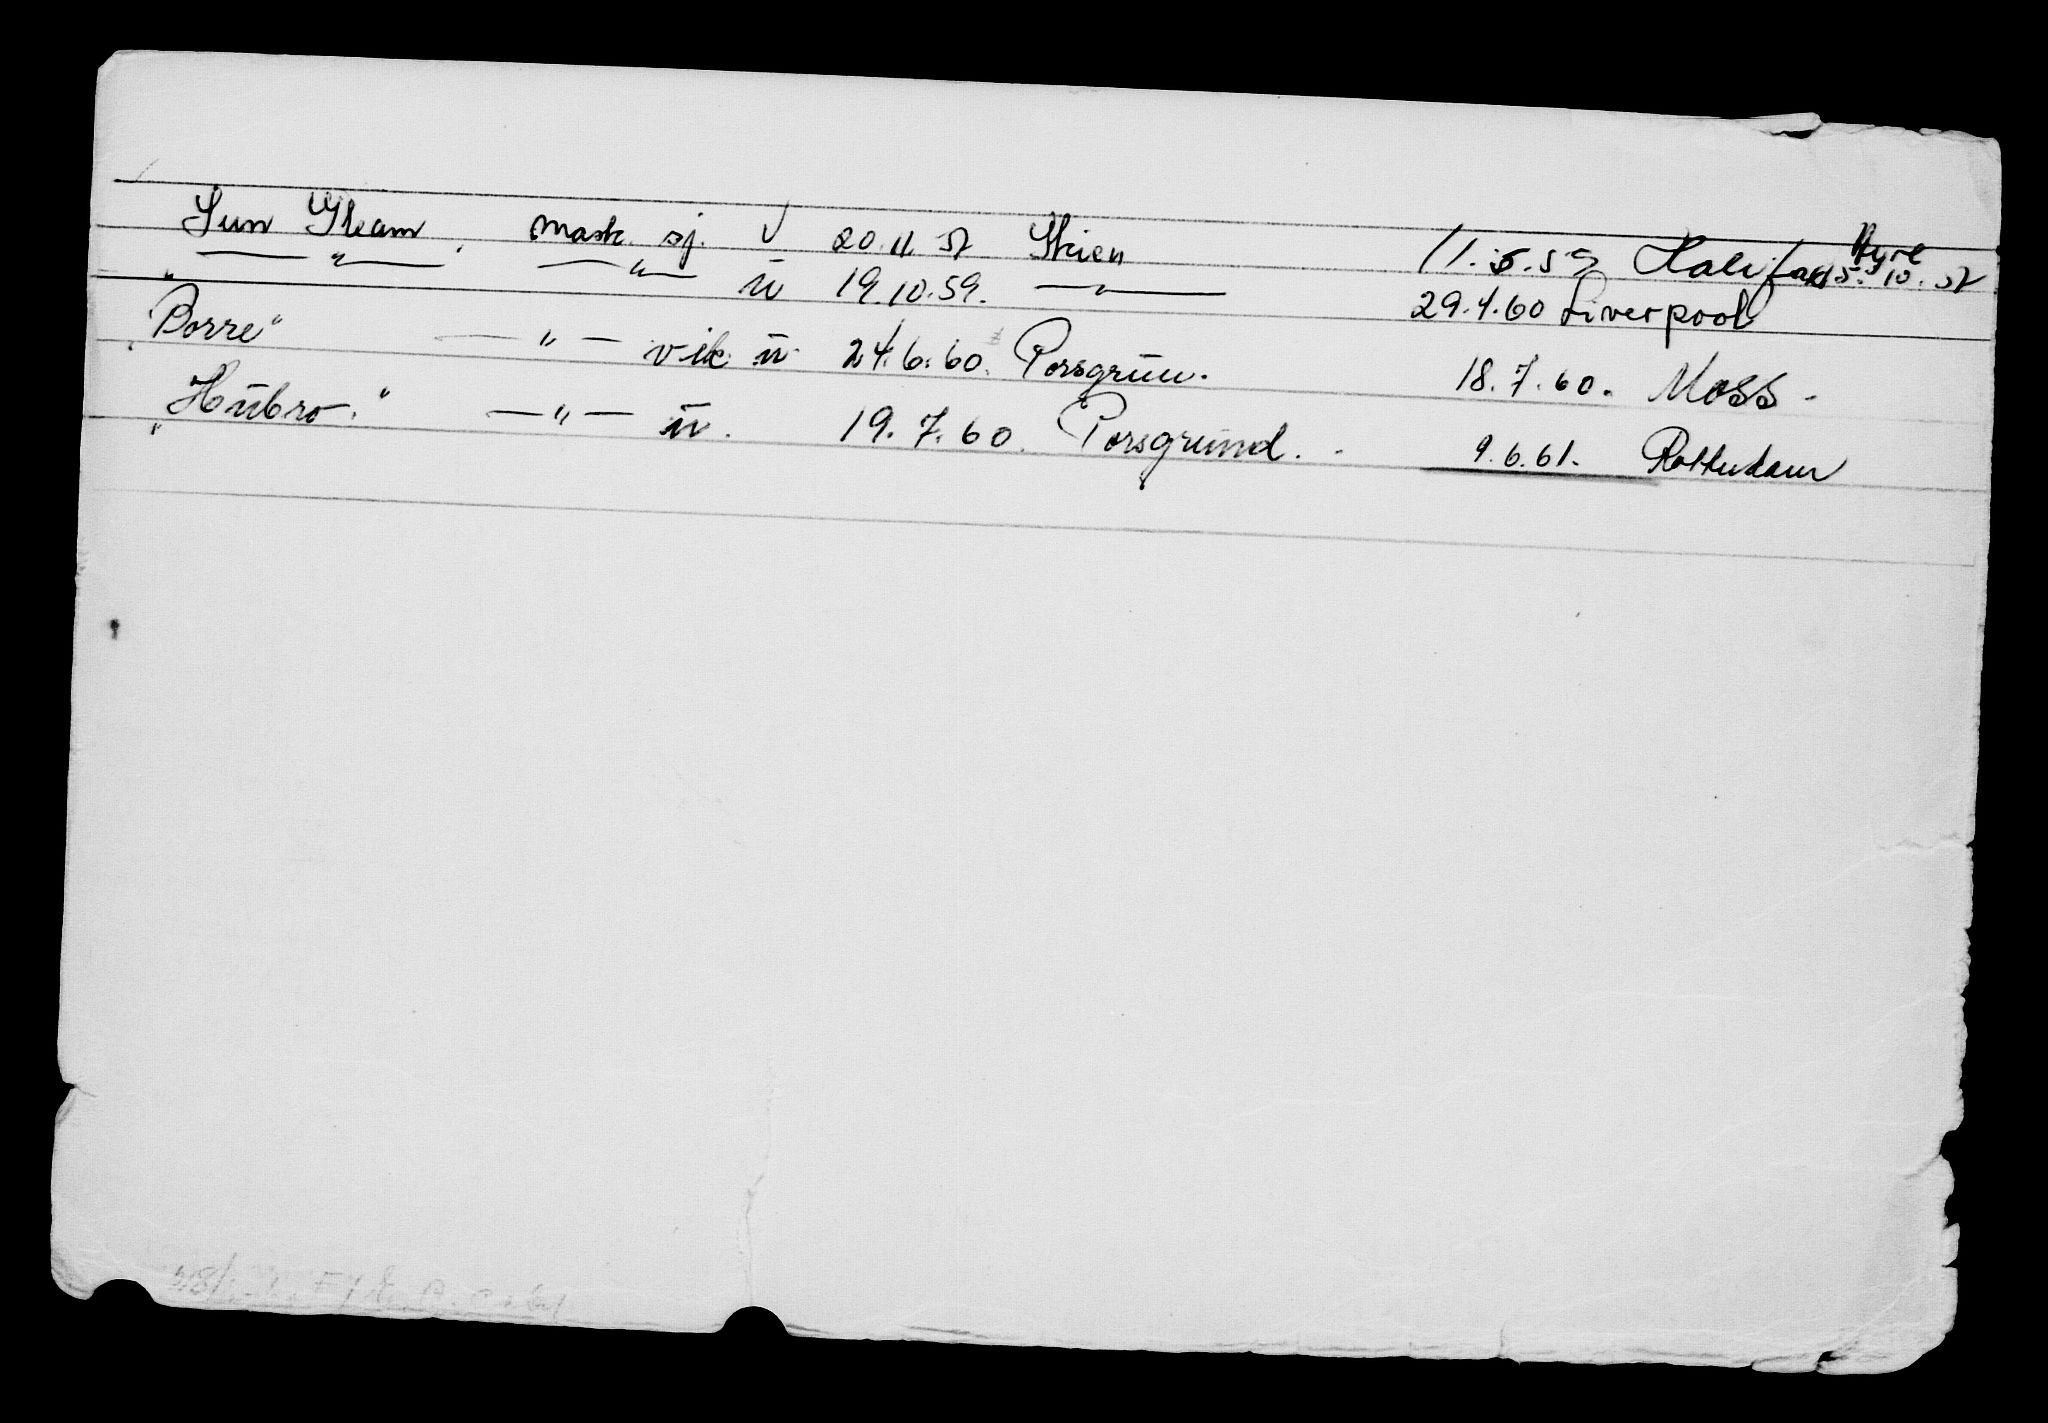 Sun Gleam. mask. sj. v 20.11.57 Skien 11.5.59 Halifax Hyre 15.10.57
— " — — " — ü 19.10.59. — " — 29.4.60 Liverpool
"Borre" — " — vik. ü. 24.6.60. Porsgrun. 18.7.60. Moss.
"Hübro." — " — ü. 19.7.60. Porsgrund. 9.6.61. Rotterdam